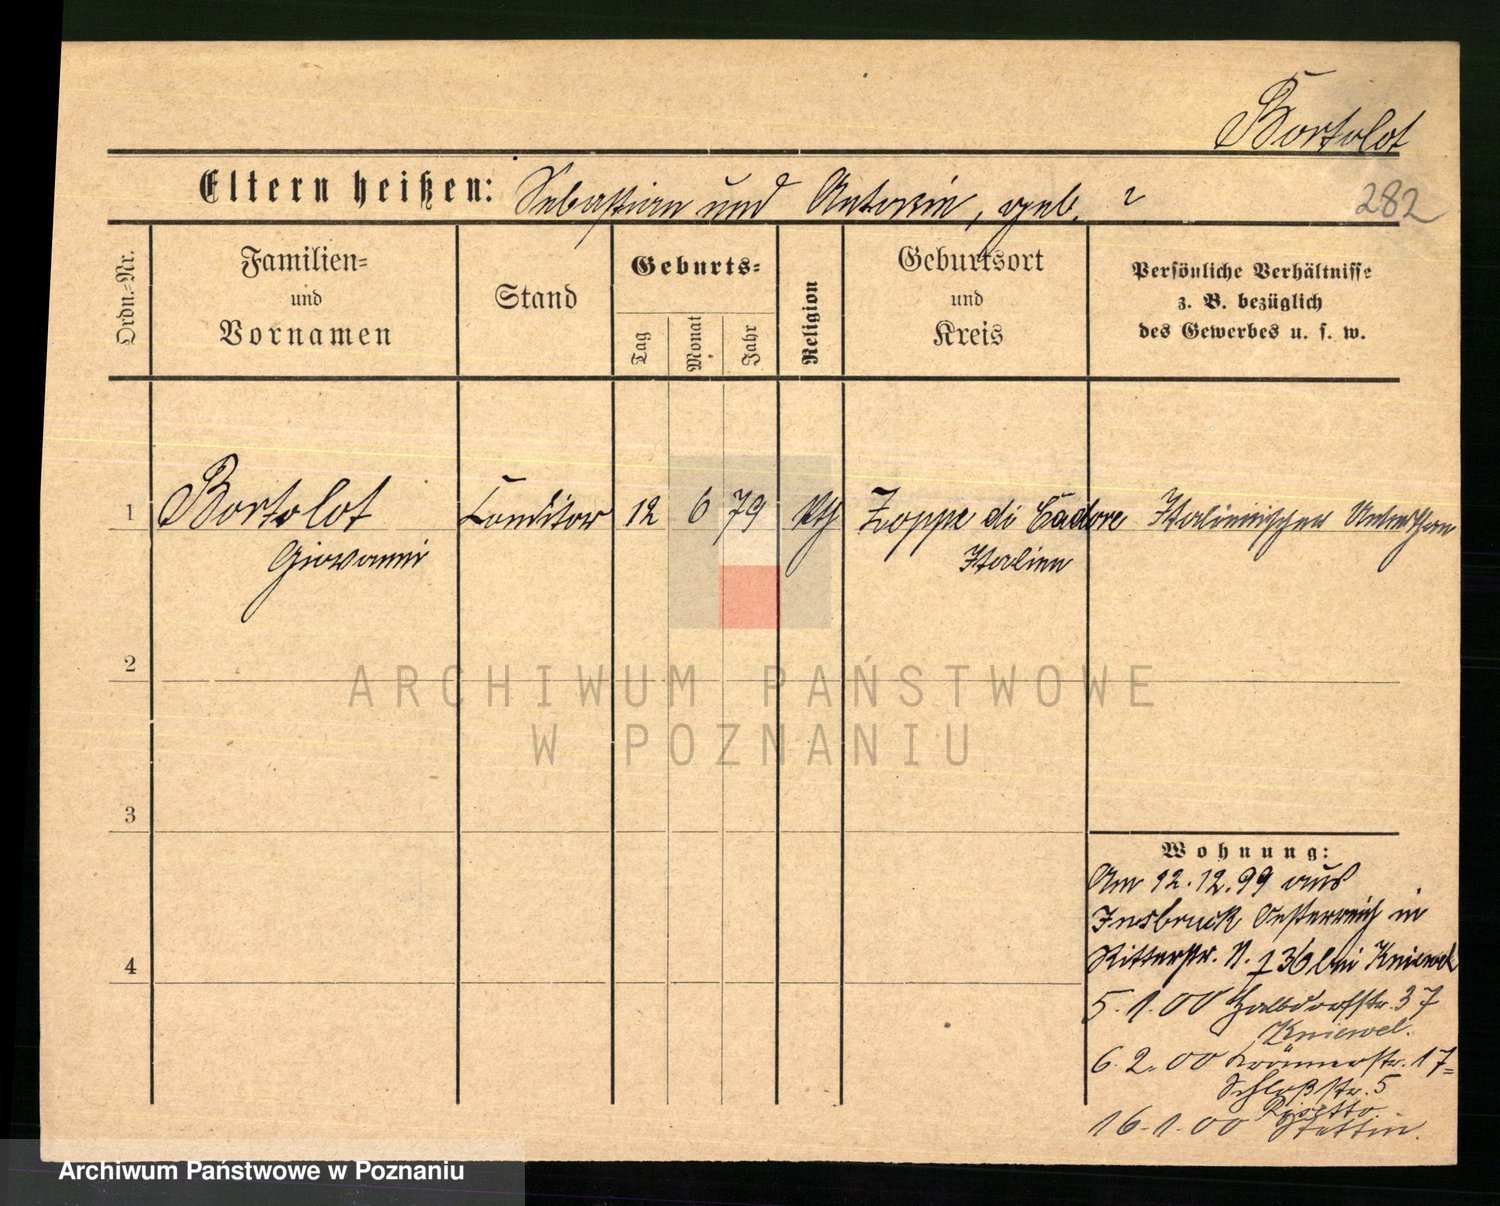 Bortolot
Eltern heißen: Sebastian und Antonie, geb. ?
282
Ordn.=Nr.
Familien=
und
Vornamen
Stand
Geburts=
Tag
Monat
Jahr
Religion
Geburtsort
und
Kreis
Persönliche Verhältnisse
z. B. bezüglich
des Gewerbes u. s. w.
1 Bortolot Conditor 12 6 79 kth Zoppe di Cadore Italienischer Unterthan
Giovanni Italien
2
ARCHIWUM PAŃSTWOWE
W POZNANIU
3
4
Wohnung:
Am 12.12.99 aus
Insbruck Oesterreich in
Ritterstr. N. 36 bei Kniewel
5.1.00 Halbdorfstr. 37
Kniewel.
6.2.00 Krämerstr. 17=
Schloßstr. 5
16.1.00 Stettin.
Archiwum Państwowe w Poznaniu